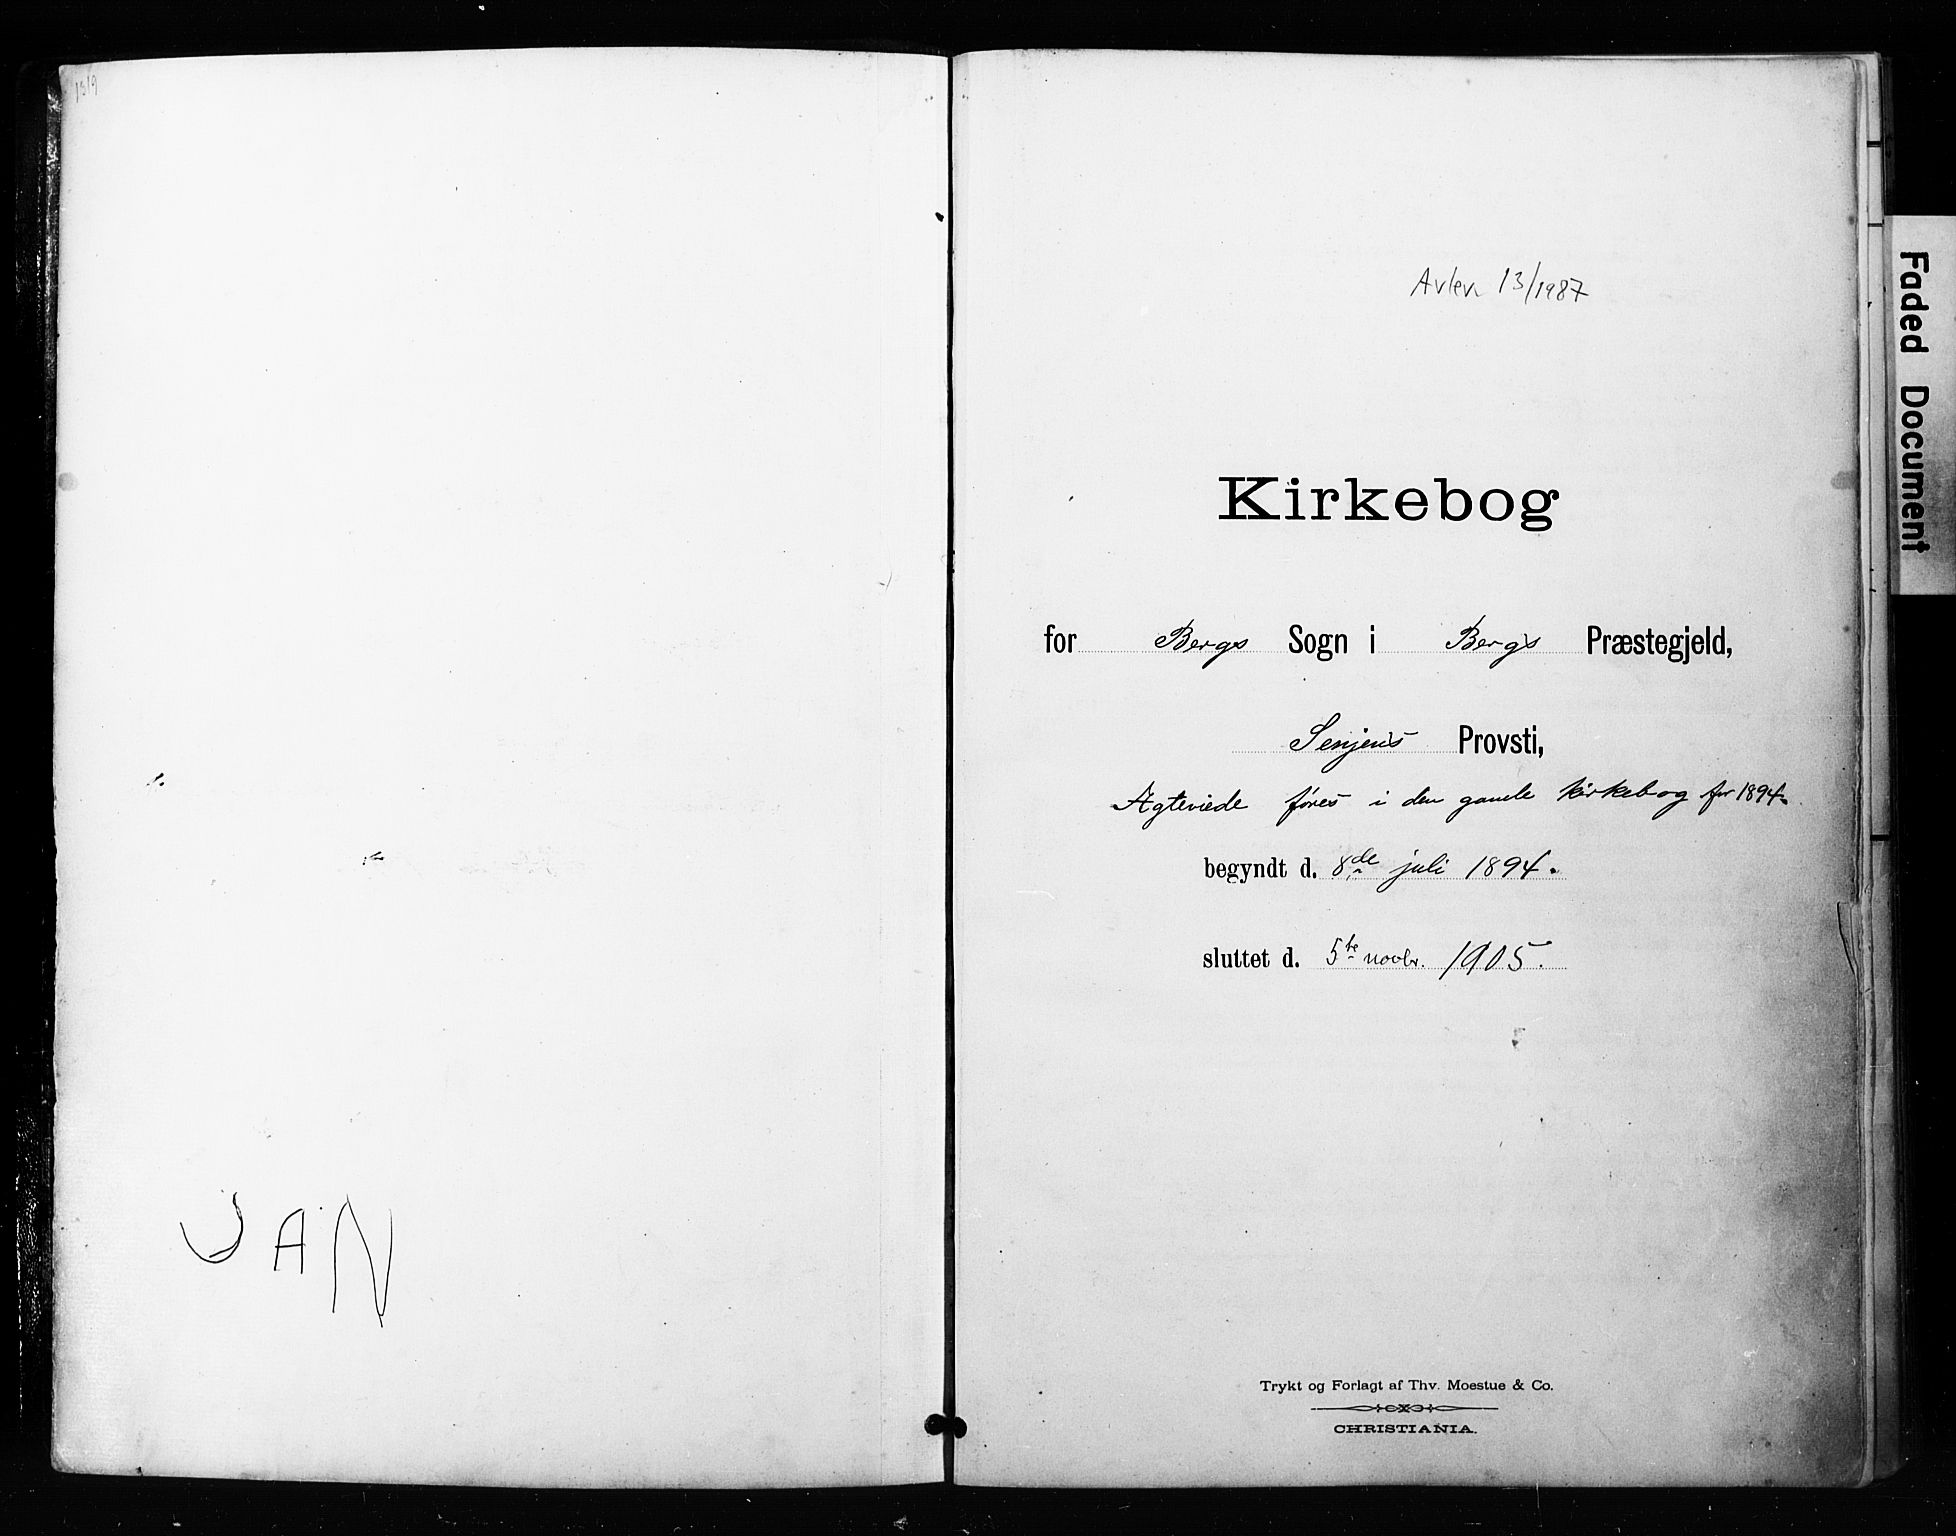 1519
JAN
Avlev. 13/1987
Kirkebog
for Bergs Sogn i Bergs Præstegjeld,
Senjens Provsti,
Agteviede føres i den gamle kirkebog for 1894.
begyndt d. 8de juli 1894.
sluttet d. 5te novbr. 1905.
Trykt og Forlagt af Thv. Moestue & Co.
CHRISTIANIA.
Faded Document